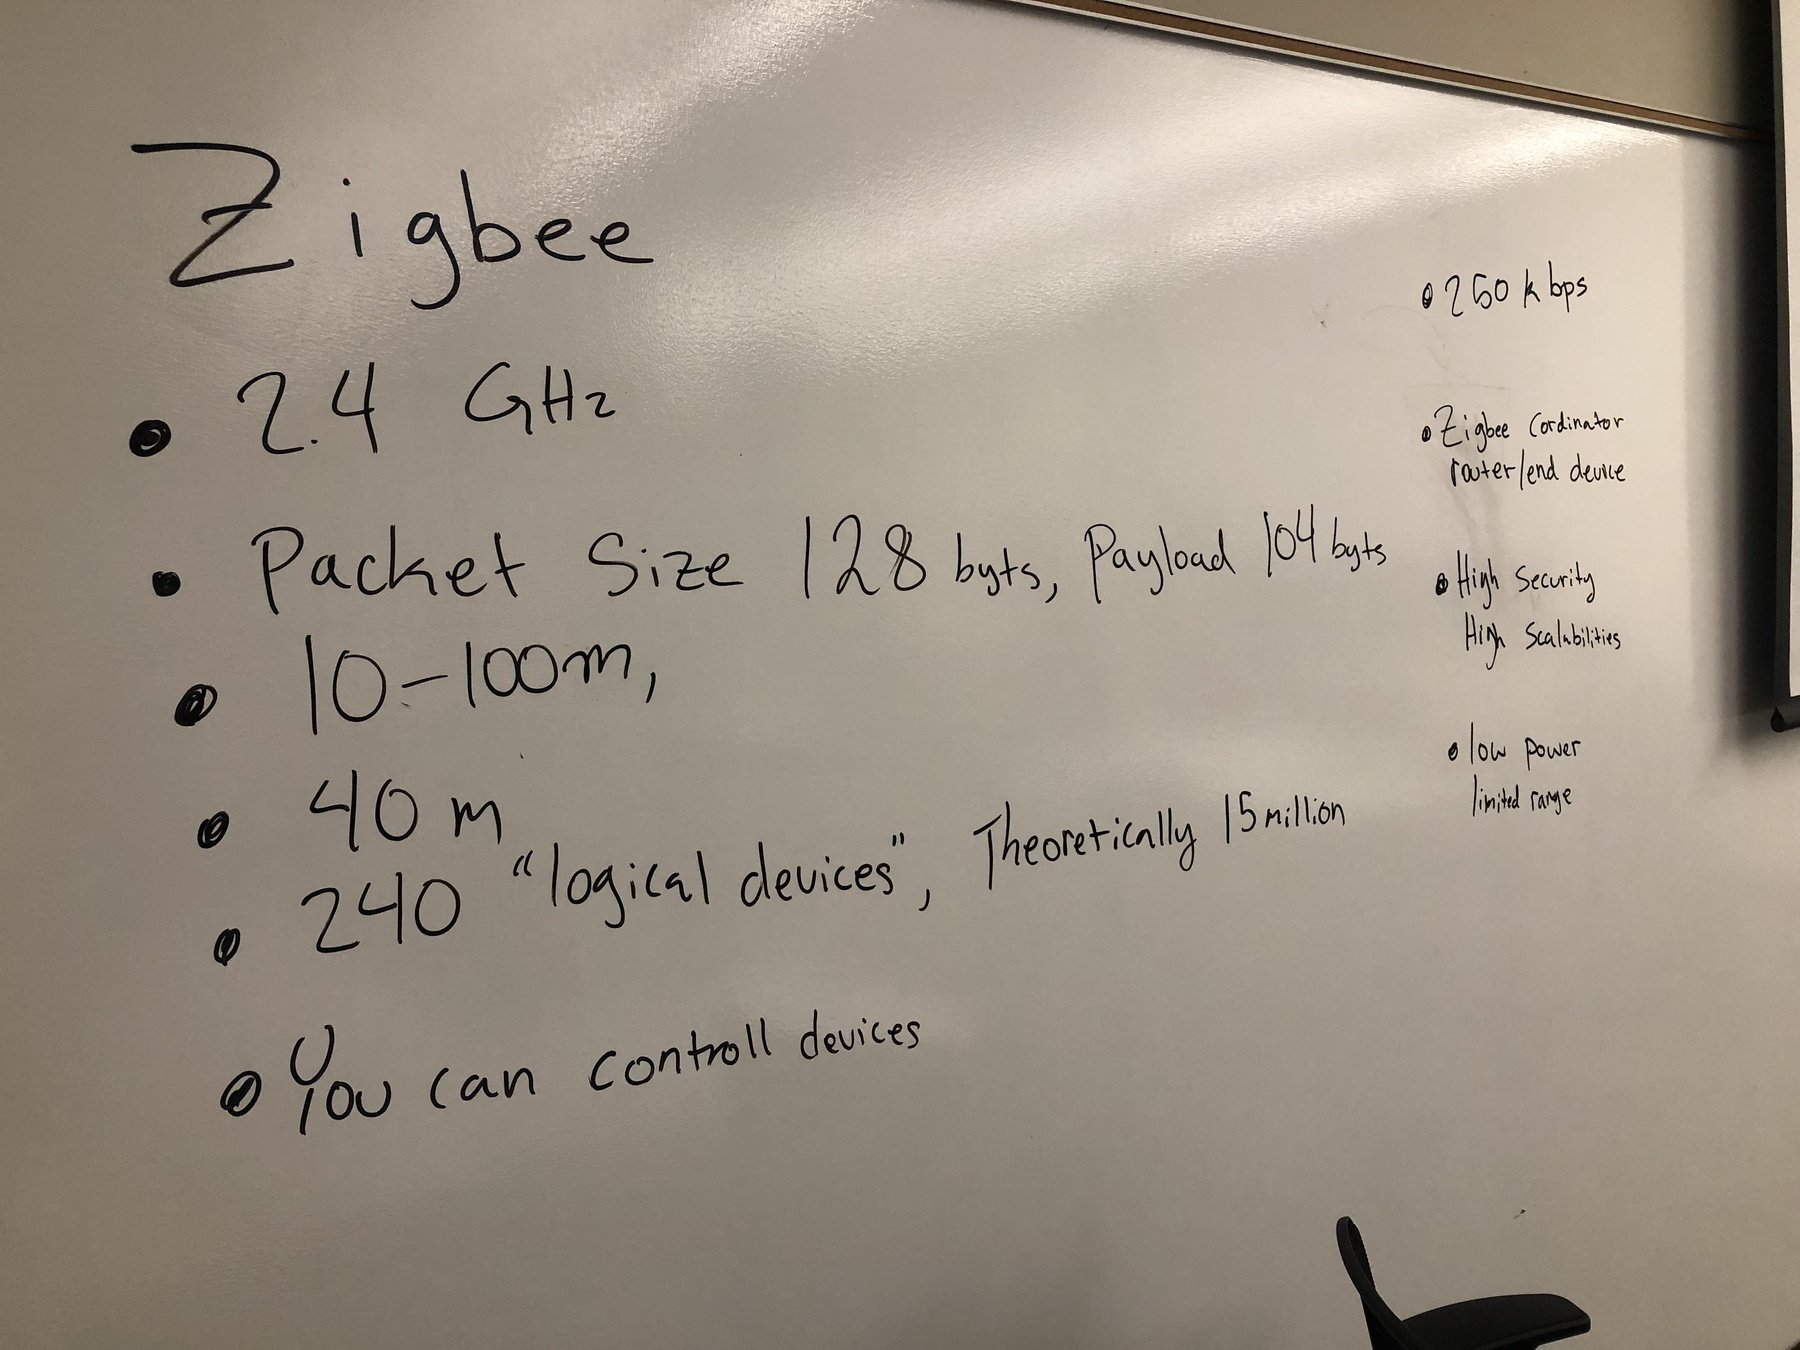 Zigbee
• 2.4 GHz
• Packet Size 128 byts, Payload 104 byts
• 10-100m,
• 40 m
• 240 "logical devices", Theoretically 15 million
• You can controll devices
• 250 kbps
• Zigbee Cordinator
router/end device
• High Security
High Scalabilities
• low power
limited range